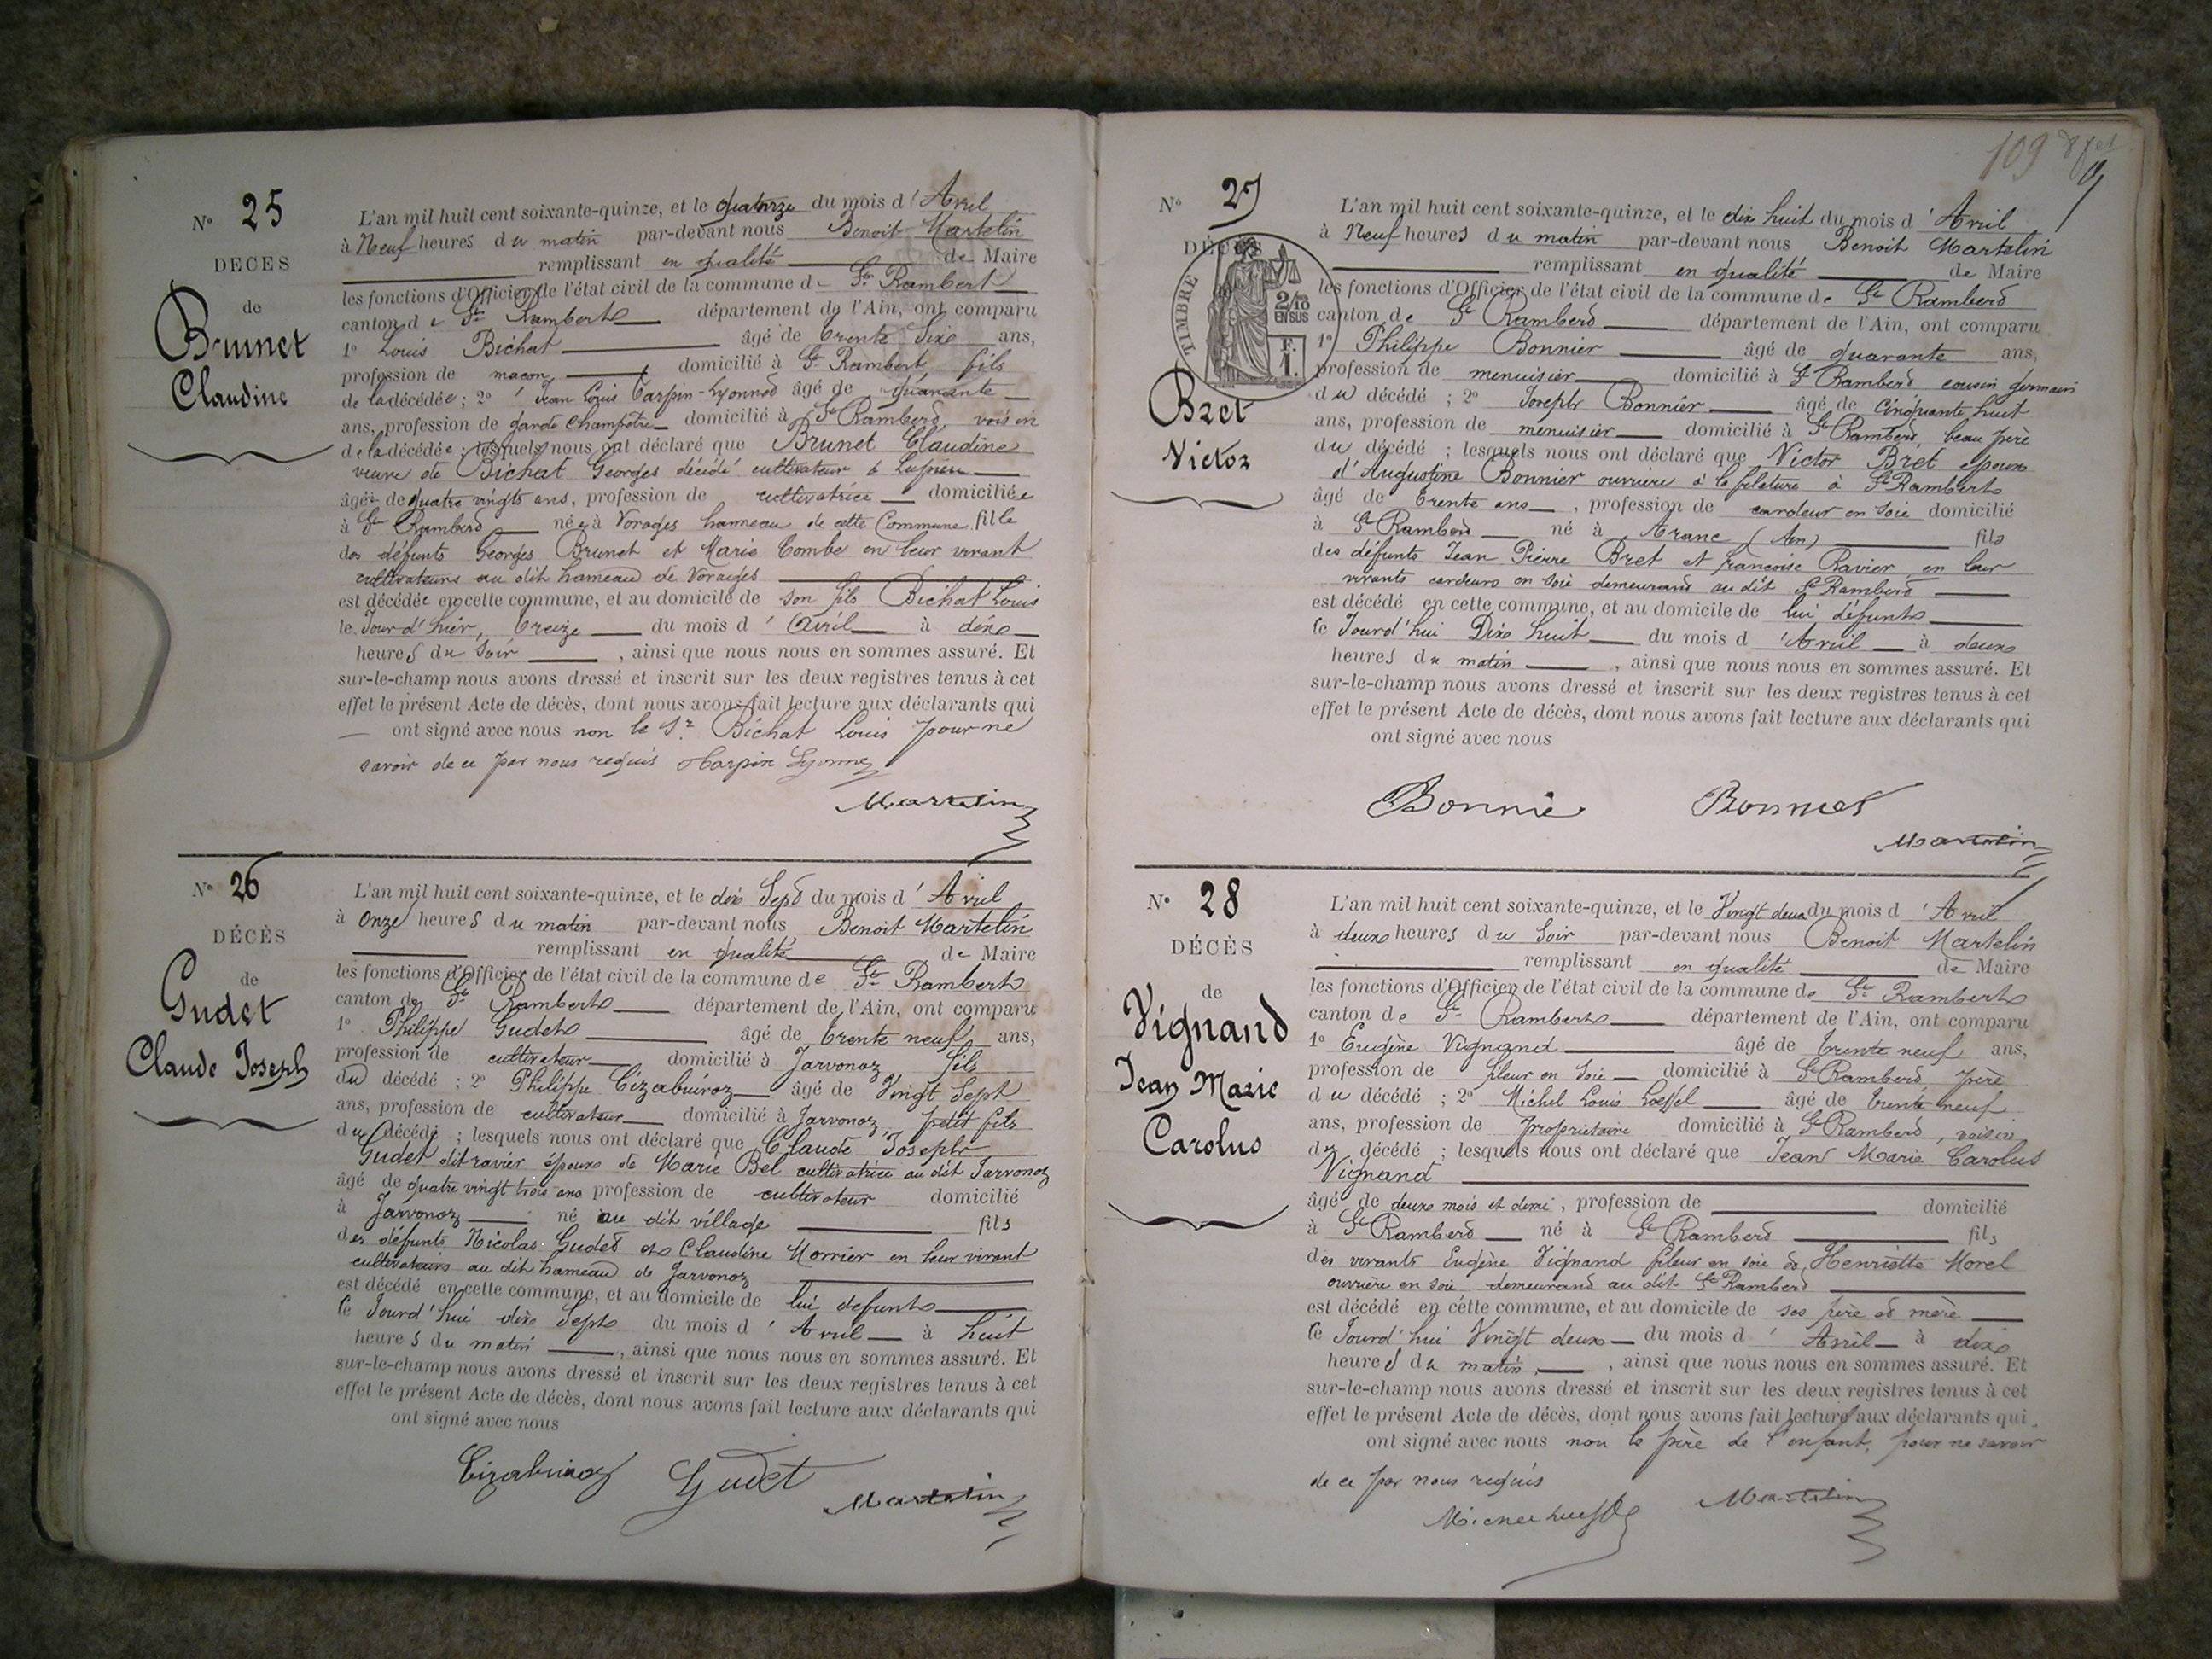 N° 25
DÉCÈS
de
Brunet
Claudine
L'an mil huit cent soixante-quinze, et le quatorze du mois d'Avril
à Neuf heures du matin par-devant nous Benoit Martelin
remplissant en qualité de Maire
les fonctions d'Officier de l'état civil de la commune de St Rambert
canton de St Rambert département de l'Ain, ont comparu
1° Louis Bichat âgé de trente dixe ans,
profession de macon, domicilié à St Rambert, fils
de la décédée; 2° Jean Louis Tarpin-Lyonnet âgé de quarante
ans, profession de garde champêtre domicilié à St Rambert, voisin
de la décédée; lesquels nous ont déclaré que Brunet Claudine
veuve de Bichat Georges décédé cultivateur à
âgée de quatre vingts ans, profession de cultivatrice domiciliée
à St Rambert née à Vorages hameau de cette Commune fille
des défunts Georges Brunet et Marie Combe en leur vivant
cultivateurs au dit hameau de Vorages
est décédée en cette commune, et au domicile de son fils Bichat Louis
le Jour d'hier, treize du mois d'Avril à dixe
heures du soir, ainsi que nous nous en sommes assuré. Et
sur-le-champ nous avons dressé et inscrit sur les deux registres tenus à cet
effet le présent Acte de décès, dont nous avons fait lecture aux déclarants qui
ont signé avec nous non le Sr Bichat Louis pour ne
savoir de ce par nous requis Tarpin Lyonnet
Martelin
N° 26
DÉCÈS
de
Gudet
Claude Joseph
L'an mil huit cent soixante-quinze, et le dix Sept du mois d'Avril
à onze heures du matin par-devant nous Benoit Martelin
remplissant en qualité de Maire
les fonctions d'Officier de l'état civil de la commune de St Rambert
canton de St Rambert département de l'Ain, ont comparu
1° Philippe Gudet âgé de trente neuf ans,
profession de cultivateur domicilié à Javornoz fils
du décédé; 2° Philippe Cizabuiroz âgé de Vingt Sept
ans, profession de cultivateur domicilié à Javornoz, petit fils
du décédé; lesquels nous ont déclaré que Claude Joseph
Gudet dit ravier époux de Marie Bel cultivatrice au dit Javornoz
âgé de quatre vingt trois ans profession de cultivateur domicilié
à Javornoz né au dit village fils
des défunts Nicolas Gudet et Claudine Morrier en leur vivant
cultivateurs au dit hameau de Javornoz
est décédé en cette commune, et au domicile de lui defunt
le Jourd'hui dix Sept du mois d'Avril à huit
heures du matin, ainsi que nous nous en sommes assuré. Et
sur-le-champ nous avons dressé et inscrit sur les deux registres tenus à cet
effet le présent Acte de décès, dont nous avons fait lecture aux déclarants qui
ont signé avec nous
Cizabuiroz Gudet Martelin
109
9
N° 27
DÉCÈS
TIMBRE
2/10
EN SUS
F.
1.
Bret
Victor
L'an mil huit cent soixante-quinze, et le dix huit du mois d'Avril
à Neuf heures du matin par-devant nous Benoit Martelin
remplissant en qualité de Maire
les fonctions d'Officier de l'état civil de la commune de St Rambert
canton de St Rambert département de l'Ain, ont comparu
1° Philippe Bonnier âgé de quarante ans,
profession de menuisier domicilié à St Rambert cousin germain
du décédé; 2° Joseph Bonnier âgé de Cinquante huit
ans, profession de menuisier domicilié à St Rambert, beau père
du décédé; lesquels nous ont déclaré que Victor Bret époux
d'Augustine Bonnier ouvrière à la filature à St Rambert
âgé de trente ans, profession de cardeur en soie domicilié
à St Rambert né à Aranc (Ain) fils
des défunts Jean Pierre Bret et francoise Ravier, en leur
vivants cardeurs en soie demeurant au dit St Rambert
est décédé en cette commune, et au domicile de lui défunt
le Jourd'hui Dix huit du mois d'Avril à deux
heures du matin, ainsi que nous nous en sommes assuré. Et
sur-le-champ nous avons dressé et inscrit sur les deux registres tenus à cet
effet le présent Acte de décès, dont nous avons fait lecture aux déclarants qui
ont signé avec nous
Bonnie Bonnier
Martelin
N° 28
DÉCÈS
de
Vignand
Jean Marie
Carolus
L'an mil huit cent soixante-quinze, et le Vingt deux du mois d'Avril
à deux heures du soir par-devant nous Benoit Martelin
remplissant en qualité de Maire
les fonctions d'Officier de l'état civil de la commune de St Rambert
canton de St Rambert département de l'Ain, ont comparu
1° Eugène Vignand âgé de trente neuf ans,
profession de fileur en soie domicilié à St Rambert père
du décédé; 2° Michel Louis Loeffel âgé de trente neuf
ans, profession de Propriétaire domicilié à St Rambert, voisin
du décédé; lesquels nous ont déclaré que Jean Marie Carolus
Vignand
âgé de deux mois et demi, profession de domicilié
à St Rambert né à St Rambert fils
des vivants Eugène Vignand fileur en soie et Henriette Morel
ouvrière en soie demeurant au dit St Rambert
est décédé en cette commune, et au domicile de ses père et mère
le Jourd'hui Vingt deux du mois d'Avril à dix
heures du matin, ainsi que nous nous en sommes assuré. Et
sur-le-champ nous avons dressé et inscrit sur les deux registres tenus à cet
effet le présent Acte de décès, dont nous avons fait lecture aux déclarants qui
ont signé avec nous non le père de l'enfant, pour ne savoir
de ce par nous requis
Martelin